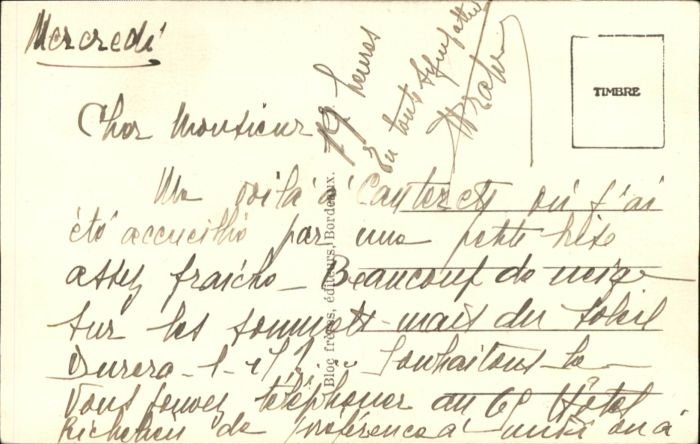 Mercredi
Cher Monsieur
Me voilà à Cauterets où j'ai
été accueillie par une petite bise
assez fraîche - Beaucoup de neige
sur les sommets mais du soleil
Durera-t-il ? Souhaitons le
Vous pouvez téléphoner au 69 Hôtel
Richelieu de préférence à midi ou à
19 heures
En toute sympathie
TIMBRE
Bloc frères, éditeurs, Bordeaux.